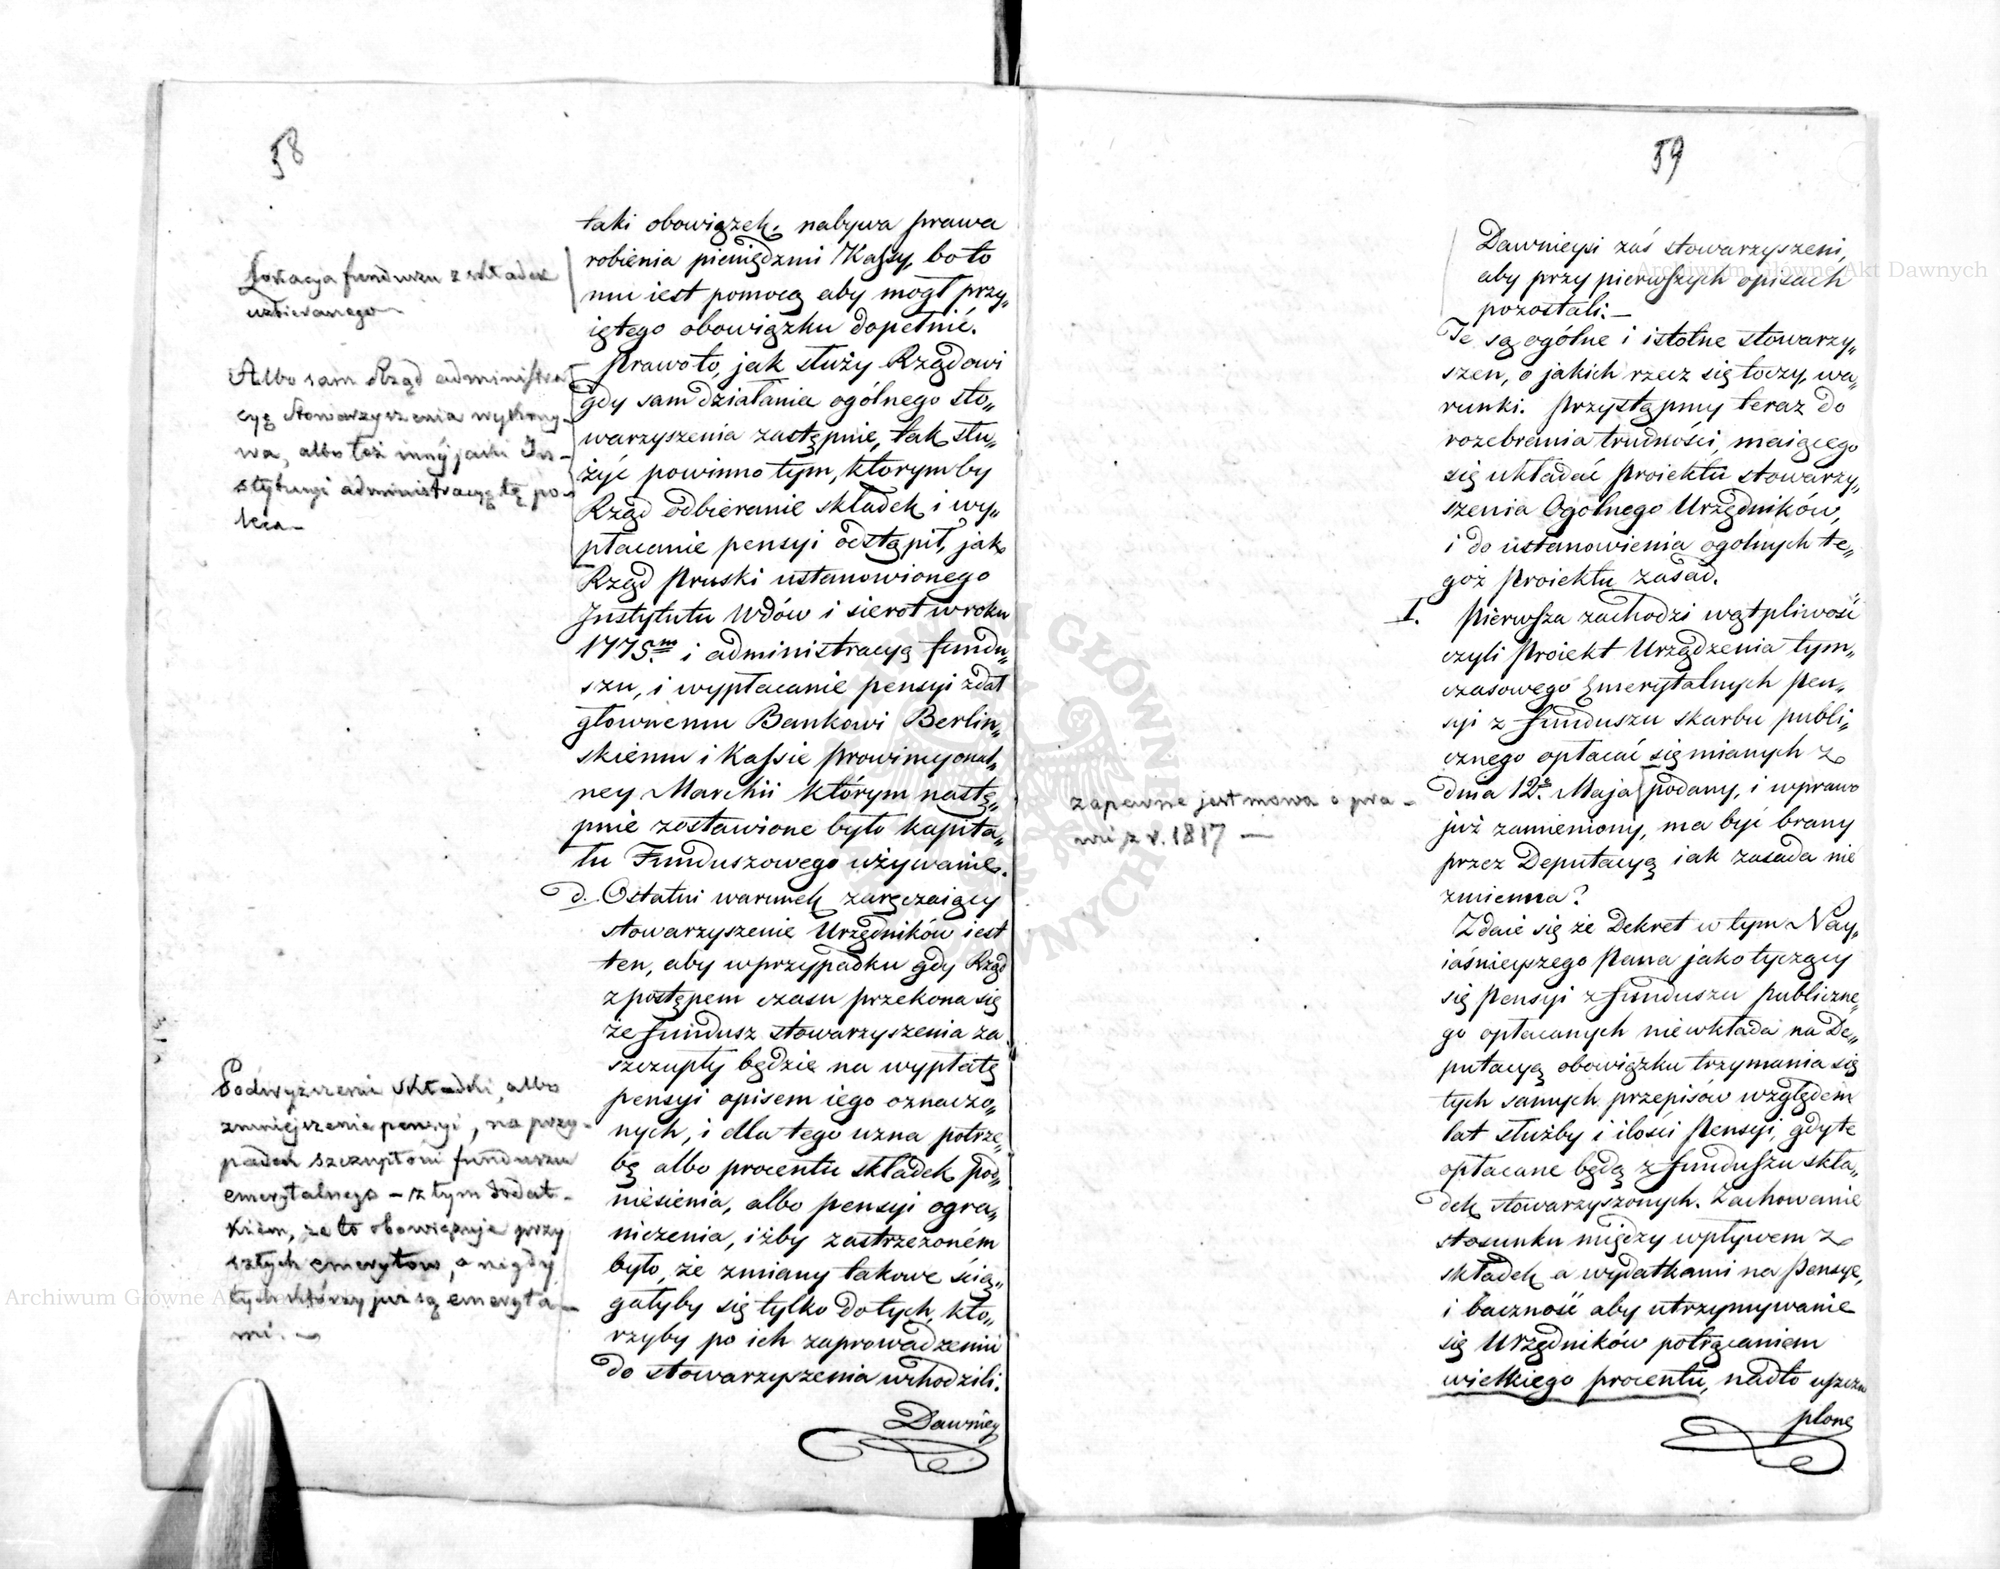 58
Lokacja funduszu z składek
uzbieranego
Albo sam Rząd administra
cyę Stowarzyszenia wykony-
wa, albo też innÿ jaki In-
stytucyi administracyę tę po-
leca
Podwyższenie składki, albo
zmniejszenie pensyi, na przy-
padek szczupłości funduszu
emerytalnego – z tym dodat-
kiem, że to obowiązuje przy
szłych emerytów, a nigdy
tych którzy już są emeryta-
mi. –
taki obowiązek, nabywa prawa
robienia pieniędzmi Kassy, bo to
mu iest pomocą aby mogł przy„
iętego obowiązku dopełnić.
Prawo to, jak służy Rządowi
gdy sam działania ogólnego sto„
warzyszenia zastępnie, tak słu„
żyć powinno tym, ktorymby
Rząd odbieranie składek i wy„
płacanie pensyi odstąpił, jak
Rząd Pruski ustanowionego
Instytutu Wdów i sierot w roku
1775.m i administracyą fundu„
szu, i wypłacanie pensyi zdał
głownemu Bankowi Berlin„
skiemu i Kassie prowincyonal„
ney Marchii którym nastę„
pnie zostawione było kapita„
łu Funduszowego używanie.
d. Ostatni warunek zaręczaiący
stowarzyszenie Urzędników iest
ten, aby w przypadku gdy Rząd
z postępem czasu przekona się
że fundusz stowarzyszenia za
szczupły będzie na wypłatę
pensyi opisem iego oznaczo„
nych, i dla tego uzna potrze„
bę albo procentu składek pod„
niesienia, albo pensyi ogra„
niczenia, iżby zastrzeżoném
było, że zmiany takowe ścią„
gałyby się tylko do tych, kto„
rzyby po ich zaprowadzeniu
do stowarzyszenia wchodzili.
Dawniey
59
zapewne jest mowa o pra-
wie z r. 1817 —
Dawnieysi zaś stowarzyszeni,
aby przy pierwszych opisach
pozostali. –
Te są ogólne i istotne stowarzy„
szen, o jakich rzecz się toczy, wa„
runki. Przystąpmy teraz do
rozebrania trudności, maiącego
się układać Proiektu stowarzy„
szenia Ogolnego Urzędników,
i do ustanowienia ogolnych te„
goż Proiektu zasad.
I. Pierwsza zachodzi wątpliwość
czyli Proiekt Urządzenia tym„
czasowego Emerytalnych Pen„
syi z funduszu skarbu publi„
cznego opłacać się mianych z
dnia 12.e Maja podany, i w prawo
już zamieniony, ma być brany
przez Deputacyą iak zasada nie
zmienna?
Zdaie się że Dekret w tym Nay„
iaśnieyszego Pana jako tyczący
się Pensyi z funduszu publiczne„
go opłacanych nie wkłada na De„
putacyą obowiązku trzymania się
tych samych przepisów względem
lat służby i ilości Pensyi, gdy te
opłacane będą z funduszu skła„
dek stowarzyszonych. Zachowanie
stosunku między wpływem z
składek a wydatkami na Pensye,
i baczność aby utrzymywanie
się Urzędników potrącaniem
wielkiego procentu, nadto uszczu
plone
Archiwum Główne Akt Dawnych